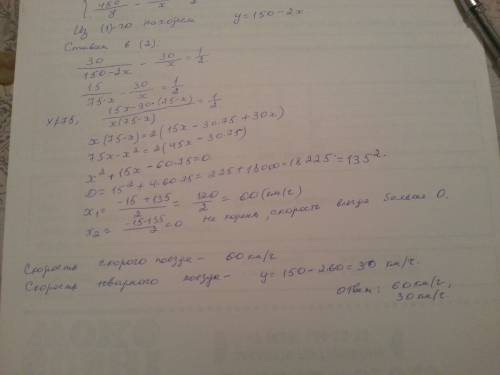 { 450/y - /x = 1/2
Из (1)-го находим y=150-2x
Ставим в (2).
30/150-2x - 30/x = 1/2
15/75-x - 30/x = 1/2
x≠75, 15x-30·(75-x)/x(75-x) = 1/2
x(75-x)=2(15x-30·75+30x)
75x-x²=2(45x-30·75)
x²+15x-60·75=0
D=15²+4·60·75=225+18000=18225=135².
x₁= -15+135/2 = 120/2 = 60(км/ч)
x₂= -15-135/2 <0 не корень, скорость всегда больше 0.
Скорость скорого поезда - 60 км/ч
Скорость товарного поезда - y=150-2·60=30 км/ч.
Ответ: 60 км/ч,
30 км/ч.